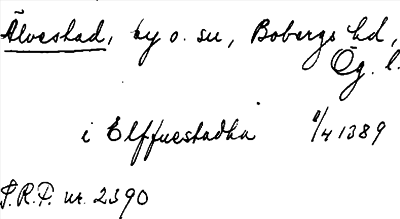 Älvestad, by o. su, Bobergs hd,
Ög. l.
i Elffuestadha 8/4 1389
S.R.P. nr. 2390